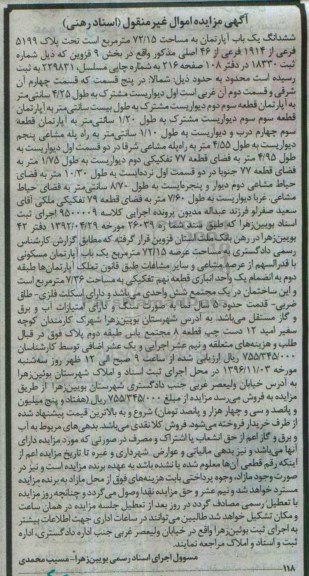 آگهی مزایده اموال غیر منقول (اسناد رهنی)
ششدانگ یک باب آپارتمان به مساحت ۷۲/۱۵ مترمربع است تحت پلاک ۵۱۹۹
فرعی از ۱۹۱۴ فرعی از ۴۶ اصلی مذکور واقع در بخش ۹ قزوین که ذیل شماره
ثبت ۱۸۳۳۰ در دفتر ۱۰۸ صفحه ۲۱۶ به شماره چاپی مسلسل ۲۲۹۸۳۱ به ثبت
رسیده است محدود به حدود ذیل: شمالا: در پنج قسمت که قسمت چهارم آن
شرقی و قسمت دوم آن غربی است اول دیواریست مشترک به طول ۴/۲۵ سانتی‌متر
به آپارتمان قطعه سوم دوم دیواریست مشترک به طول بیست سانتی‌متر به آپارتمان
قطعه سوم سوم دیواریست مشترک به طول ۱/۳۰ سانتی‌متر به آپارتمان قطعه
سوم چهارم درب و دیواریست به طول ۱/۱۰ سانتی‌متر به راه پله مشاعی پنجم
دیواریست به طول ۴/۵۵ متر به راه‌پله مشاعی شرقا در دو قسمت اول دیواریست به
طول ۴/۹۵ متر به فضای قطعه ۷۷ تفکیکی دوم دیواریست به طول ۱/۷۵ متر به
فضای قطعه ۷۷ جنوبا در دو قسمت اول نرده‌ایست به طول ۱۰/۳۰ متر به فضای
حیاط مشاعی دوم دیوار و پنجره‌ایست به طول ۸/۷۰ سانتی‌متر به فضای حیاط
مشاعی. غربا دیواریست به طول ۷/۶۰ متر به فضای قطعه ۷۹ تفکیکی ملکی آقای
سعید صفرلو فرزند عبداله مدیون پرونده اجرایی کلاسه ۹۵۰۰۰۰۹ اجرای ثبت
اسناد بویین‌زهرا که طبق سند شماره ۲۶۰۳۹ مورخه ۱۳۹۲/۰۴/۲۹ دفتر ۴۲
بویین‌زهرا در رهن بانک ملت استان قزوین قرار گرفته که مطابق گزارش کارشناس
رسمی دادگستری به مساحت عرصه ۷۲/۱۵ مترمربع یک باب آپارتمان مسکونی
با قدرالسهم از عرصه مشاعی و سایر مشاعات طبق قانون تملک آپارتمان‌ها طبقه
دوم به انضمام یک واحد انباری قطعه نهم تفکیکی به مساحت ۷/۳۶ مترمربع است
و این ساختمان در یک مجتمع شش واحدی می‌باشد و دارای اسکلت فلزی - طاق
ضربی - قدمت حدود ۵ سال نما به صورت سنگ و دارای امتیازات آب و برق
و گاز مستقل می‌باشد. به آدرس شهرستان بویین‌زهرا شهرک کارمندان کوچه
سفیر امید ۱۲ دست چپ قطعه ۸ مجتمع یاس طبقه دوم پلاک فوق در قبال
طلب و هزینه‌های متعلقه و نیم عشر اجرایی و یک عشر اضافی توسط کارشناسان
۷۵۵/۳۴۵/۰۰۰ ریال ارزیابی شده از ساعت ۹ صبح الی ۱۲ ظهر روز سه‌شنبه
مورخه ۱۳۹۶/۱۱/۰۳ در محل اجرای ثبت اسناد و املاک شهرستان بوئین‌زهرا
به آدرس خیابان ولیعصر غربی جنب دادگستری شهرستان بویین‌زهرا از طریق
مزایده به فروش می‌رسد مزایده از مبلغ ۷۵۵/۳۴۵/۰۰۰ ریال (هفتاد و پنج میلیون
و پانصد و سی و چهار هزار و پانصد تومان) شروع و به بالاترین قیمت پیشنهاد شده
از طرف خریدار فروخته می‌شود. فروش کلا نقدی می‌باشد. بدهی‌های مربوط به آب
و برق و گاز اعم از حق انشعاب یا اشتراک و مصرف در صورتی که مورد مزایده دارای
آنها می‌باشد، و نیز بدهی مالیاتی و عوارض شهرداری و غیره تا تاریخ مزایده اعم از
اینکه رقم قطعی آن‌ها معلوم شده یا نشده باشد به عهده برنده مزایده است و نیز در
صورت وجود مازاد، وجوه پرداختی بابت هزینه‌های فوق از محل مازاد به برنده مزایده
مسترد خواهد شد و نیم عشر و حق مزایده نقدا وصول می‌گردد و چنانچه روز مزایده
با تعطیل رسمی مصادف گردد در روز بعد از تعطیل جلسه مزایده در همان ساعت
و مکان تشکیل خواهد شد طالبین می‌توانند در ساعات اداری جهت اطلاعات بیشتر
به اجرای ثبت بوئین‌زهرا واقع در خیابان ولیعصر غربی جنب اداره دادگستری، اداره
ثبت و اسناد و املاک مراجعه نمایند.
مسوول اجرای اسناد رسمی بویین‌زهرا - مسیب محمدی
۱۱۸